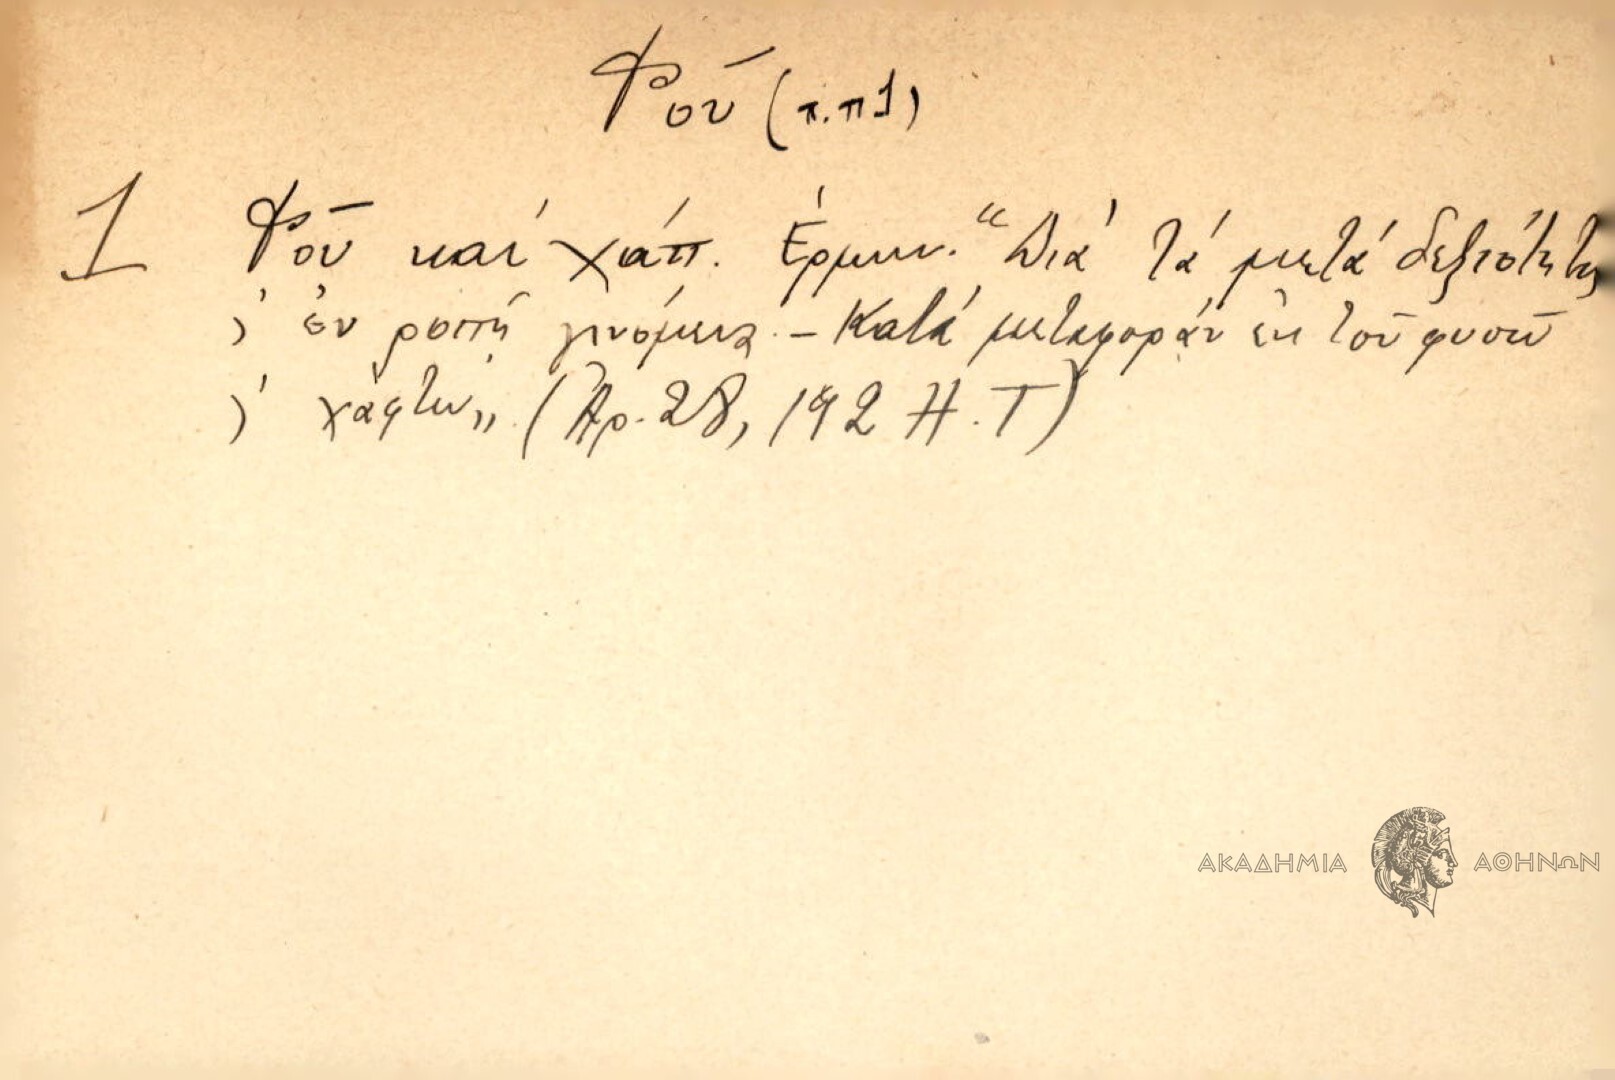 Φοῦ (π.π 1)
1 Φοῦ καί χάπ. Ἑρμην. "Διά τά μετά δεξιότητος
ἐν ροπῇ γινόμενα. – Κατά μεταφοράν ἐκ τοῦ φυσῶ
χάφτω" (Ἀρ. 28, 192 Η.Τ)
ΑΚΑΔΗΜΙΑ ΑΘΗΝΩΝ